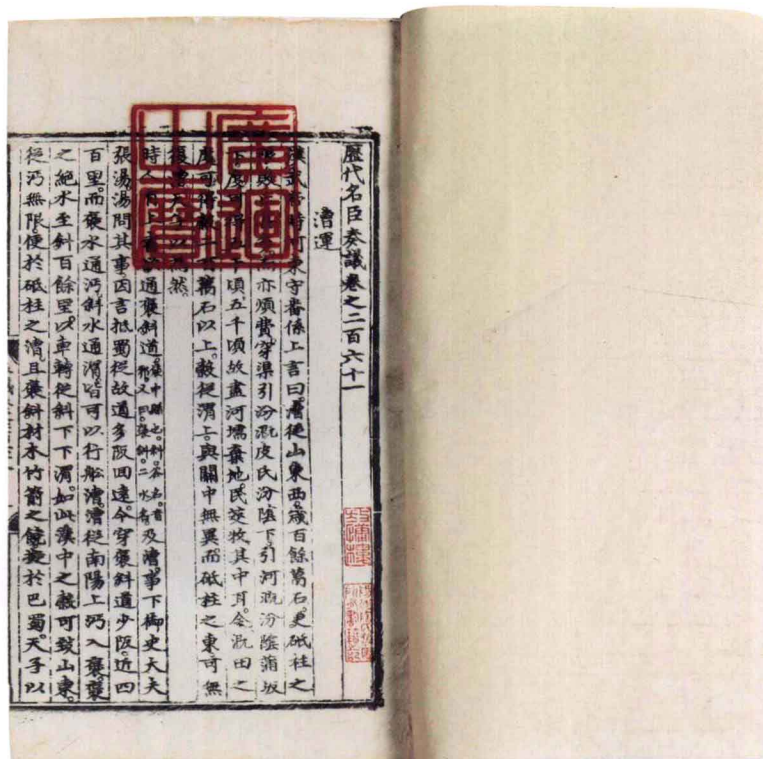 歷代名臣奏議卷之二百六十一
漕運
漢武帝時河東守番係上言曰漕從山東西歲百餘萬石更砥柱之
敗亡甚多而亦煩費穿渠引汾溉皮氏汾陰下引河溉汾陰蒲坂
下度可得五千頃五千頃故盡河壖棄地民茭牧其中耳今溉田之
度可得穀二百萬石以上穀從渭上與關中無異而砥柱之東可無
復漕天子以為然
時人有上書欲通褒斜道褒中縣也斜谷名音邪又曰褒斜二水名及漕事下御史大夫
張湯湯問其事因言抵蜀從故道多阪回遠今穿褒斜道少阪近四
百里而褒水通沔斜水通渭皆可以行舩漕漕從南陽上沔入褒褒
之絕水至斜百餘里以車轉從斜下下渭如此漢中之穀可致山東
從沔無限便於砥柱之漕且褒斜材木竹箭之饒擬於巴蜀天子以
廣運之寶